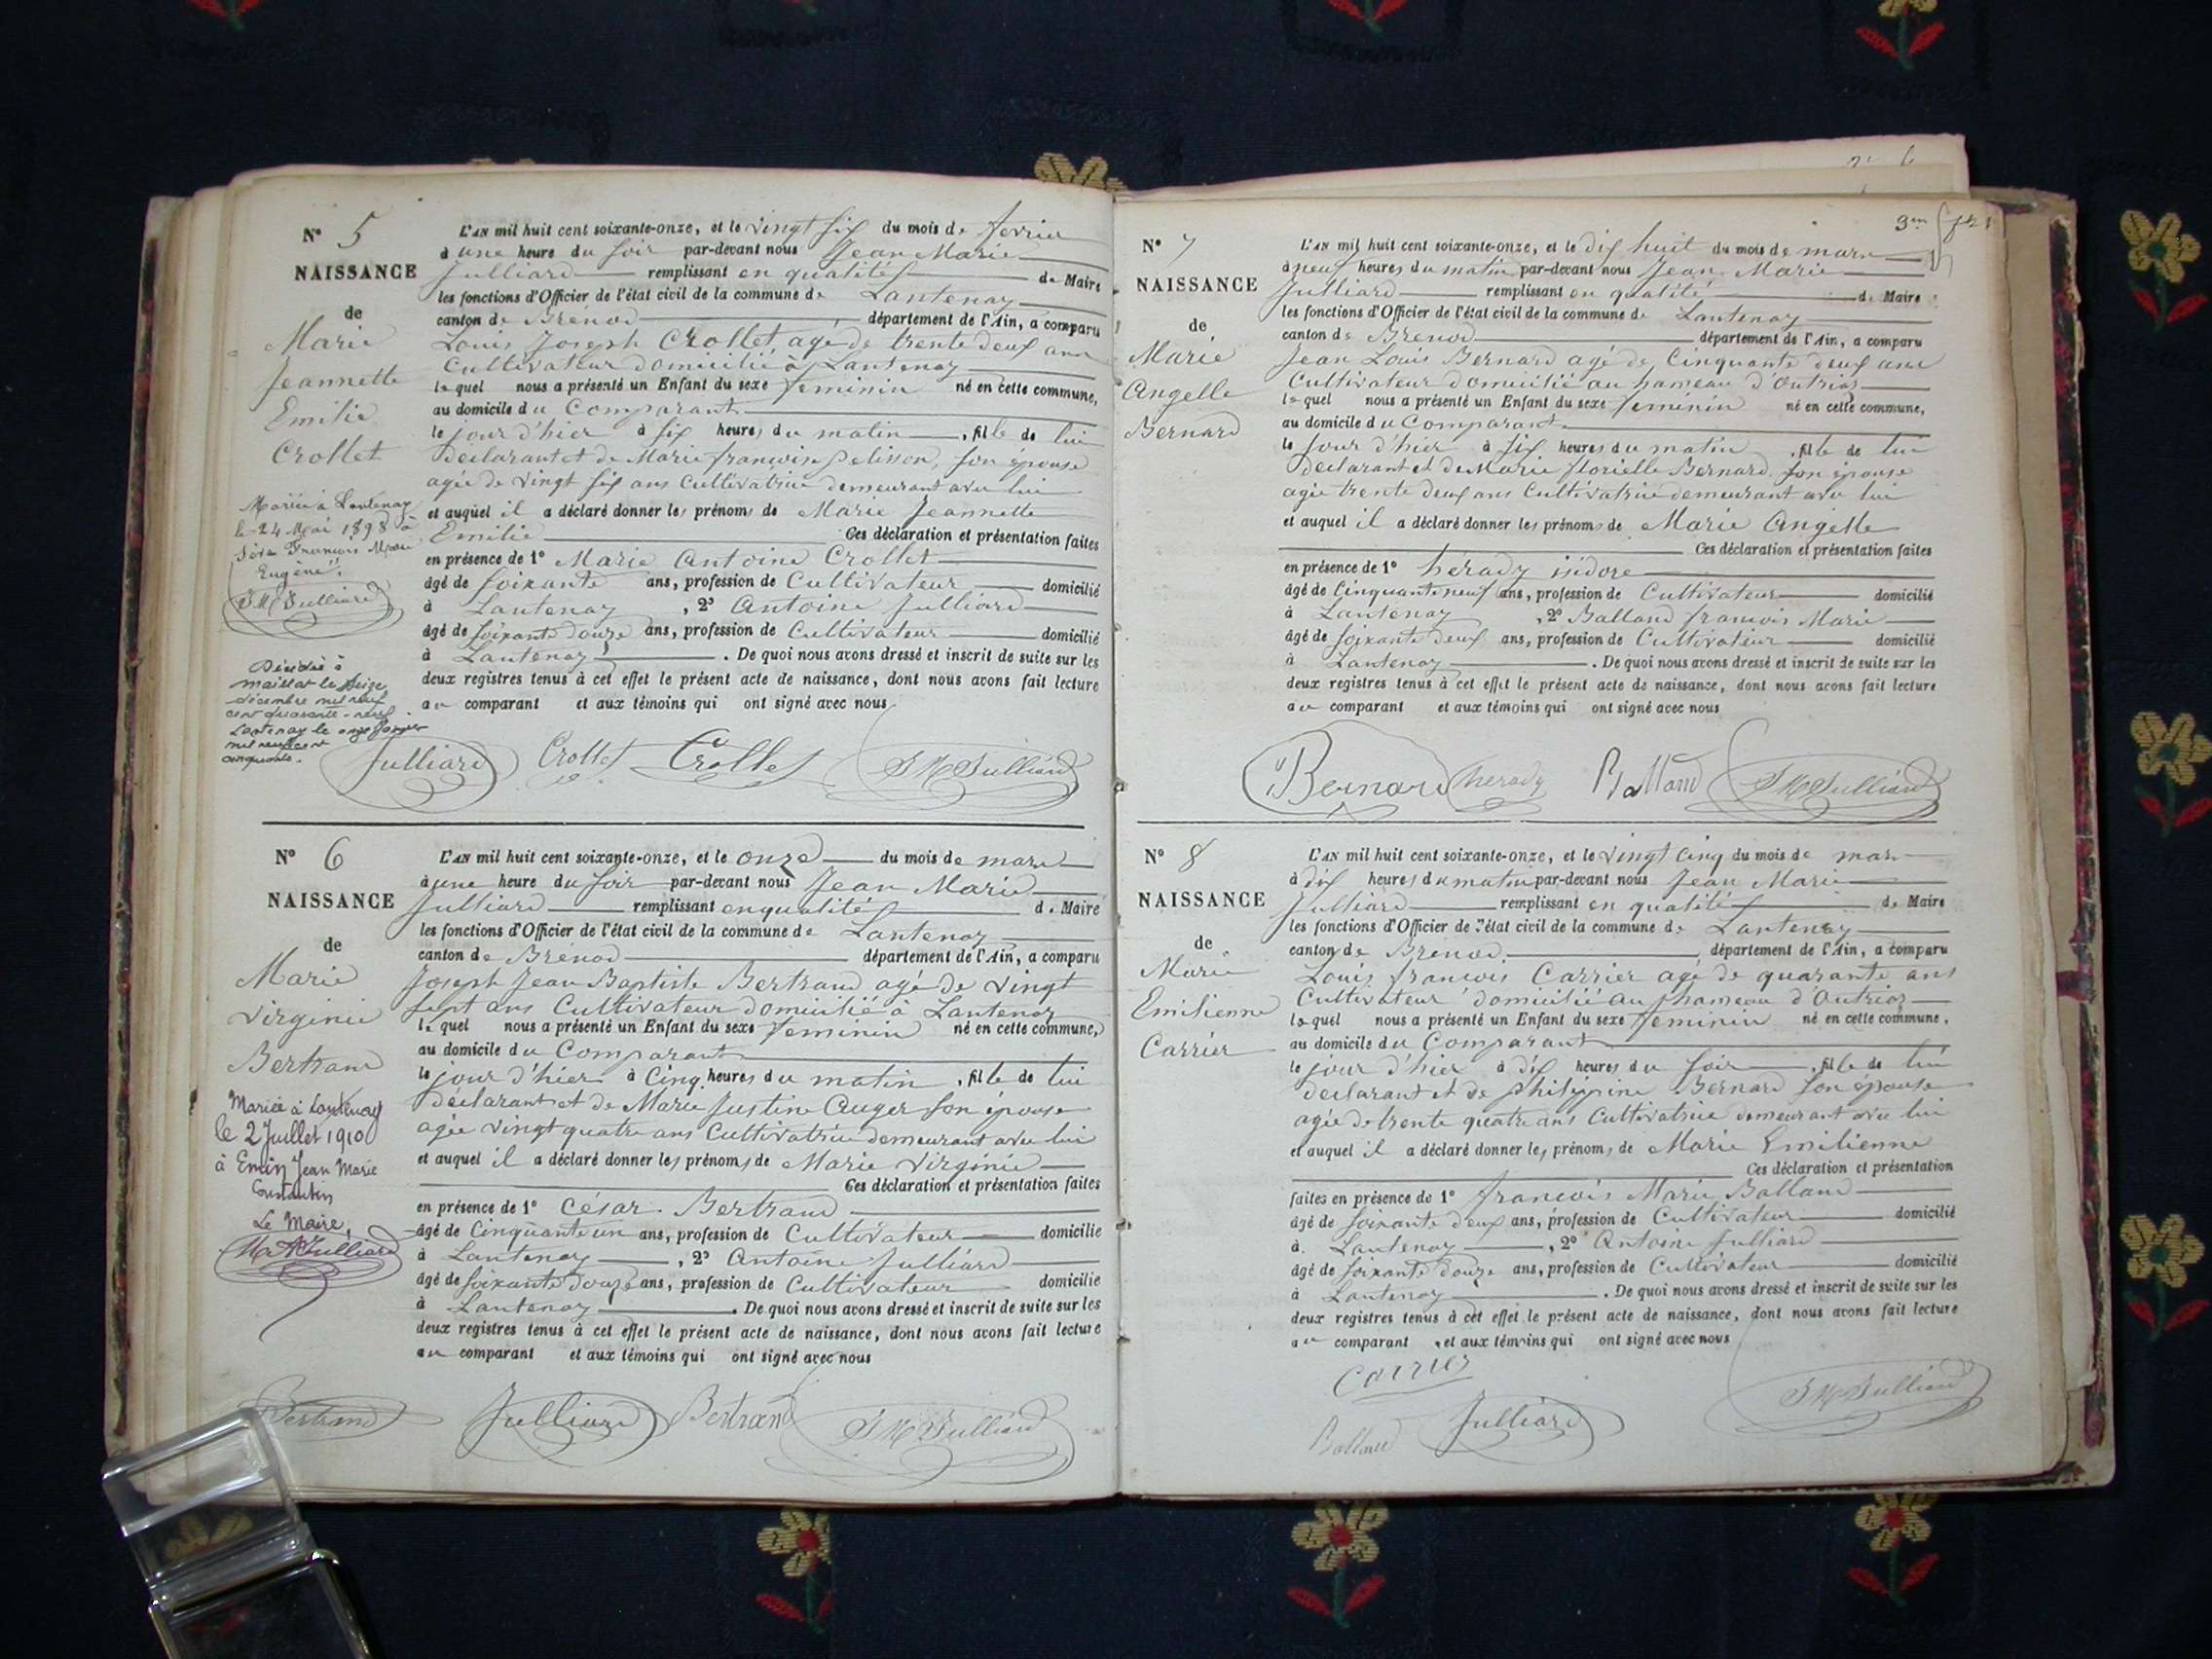 N° 5
NAISSANCE
de
Marie
Jeannette
Emilie
Crollet
Mariée à Lantenay
le 24 Mai 1898 à
François Marie
Eugène.
J M Julliard
Décédée à
maillat le seize
décembre mil neuf
cent quarante-neuf
Lantenay le onze janvier
mil neuf cent
cinquante.
L'AN mil huit cent soixante-onze, et le vingt six du mois de fevrier
à une heure du soir par-devant nous Jean Marie
Julliard remplissant en qualité de Maire
les fonctions d'Officier de l'état civil de la commune de Lantenay
canton de Brenod département de l'Ain, a comparu
Louis Joseph Crollet agé de trente deux ans
Cultivateur domicilié à Lantenay
lequel nous a présenté un Enfant du sexe feminin né en cette commune,
au domicile du Comparant
le jour d'hier à six heures du matin, fille de lui
declarant et de Marie françoise Pelisson, son épouse
agée de vingt six ans Cultivatrice demeurant avec lui
et auquel il a déclaré donner les prénoms de Marie Jeannette
Emilie Ces déclaration et présentation faites
en présence de 1° Marie Antoine Crollet
âgé de soixante ans, profession de Cultivateur domicilié
à Lantenay, 2° Antoine Julliard
âgé de soixante douze ans, profession de Cultivateur domicilié
à Lantenay. De quoi nous avons dressé et inscrit de suite sur les
deux registres tenus à cet effet le présent acte de naissance, dont nous avons fait lecture
au comparant et aux témoins qui ont signé avec nous
Julliard Crollet Crollet J M Julliard
N° 6
NAISSANCE
de
Marie
Virginie
Bertrand
Mariée à Lantenay
le 2 Juillet 1910
à Emin Jean Marie
Constantin
Le Maire,
Julliard
L'AN mil huit cent soixante-onze, et le onze du mois de mars
à une heure du soir par-devant nous Jean Marie
Julliard remplissant en qualité de Maire
les fonctions d'Officier de l'état civil de la commune de Lantenay
canton de Brénod département de l'Ain, a comparu
Joseph Jean Baptiste Bertrand agé de vingt
sept ans Cultivateur domicilié à Lantenay
lequel nous a présenté un Enfant du sexe feminin né en cette commune,
au domicile du Comparant
le jour d'hier à Cinq heures du matin, fille de lui
déclarant et de Marie Justine Auger son épouse
agée vingt quatre ans Cultivatrice demeurant avec lui
et auquel il a déclaré donner les prénoms de Marie Virginie
Ces déclaration et présentation faites
en présence de 1° César Bertrand
âgé de Cinquante un ans, profession de Cultivateur domicilié
à Lantenay, 2° Antoine Julliard
âgé de soixante douze ans, profession de Cultivateur domicilié
à Lantenay. De quoi nous avons dressé et inscrit de suite sur les
deux registres tenus à cet effet le présent acte de naissance, dont nous avons fait lecture
au comparant et aux témoins qui ont signé avec nous
Bertrand Julliard Bertrand J M Julliard
N° 7
NAISSANCE
de
Marie
Angelle
Bernard
L'AN mil huit cent soixante-onze, et le dix huit du mois de mars
à neuf heures du matin par-devant nous Jean Marie
Julliard remplissant en qualité de Maire
les fonctions d'Officier de l'état civil de la commune de Lantenay
canton de Brenod département de l'Ain, a comparu
Jean Louis Bernard agé de Cinquante deux ans
Cultivateur domicilié au hameau d'Outriaz
lequel nous a présenté un Enfant du sexe feminin né en cette commune,
au domicile du Comparant
le jour d'hier à six heures du matin, fille de lui
declarant et de Marie florielle Bernard son épouse
agée trente deux ans Cultivatrice demeurant avec lui
et auquel il a déclaré donner les prénoms de Marie Angelle
Ces déclaration et présentation faites
en présence de 1° hérady isidore
âgé de Cinquante neuf ans, profession de Cultivateur domicilié
à Lantenay, 2° Balland françois Marie
âgé de soixante deux ans, profession de Cultivateur domicilié
à Lantenay. De quoi nous avons dressé et inscrit de suite sur les
deux registres tenus à cet effet le présent acte de naissance, dont nous avons fait lecture
au comparant et aux témoins qui ont signé avec nous
Bernard herady Balland J M Julliard
N° 8
NAISSANCE
de
Marie
Emilienne
Carrier
L'AN mil huit cent soixante-onze, et le vingt cinq du mois de mars
à dix heures du matin par-devant nous Jean Marie
Julliard remplissant en qualité de Maire
les fonctions d'Officier de l'état civil de la commune de Lantenay
canton de Brenod département de l'Ain, a comparu
Louis françois Carrier agé de quarante ans
Cultivateur domicilié au hameau d'Outriaz
lequel nous a présenté un Enfant du sexe feminin né en cette commune,
au domicile du Comparant
le jour d'hier à dix heures du soir, fille de lui
declarant et de philippine Bernard son épouse
agée de trente quatre ans Cultivatrice demeurant avec lui
et auquel il a déclaré donner les prénoms de Marie Emilienne
Ces déclaration et présentation
faites en présence de 1° françois Marie Balland
âgé de soixante deux ans, profession de Cultivateur domicilié
à Lantenay, 2° Antoine Julliard
âgé de soixante douze ans, profession de Cultivateur domicilié
à Lantenay. De quoi nous avons dressé et inscrit de suite sur les
deux registres tenus à cet effet le présent acte de naissance, dont nous avons fait lecture
au comparant et aux témoins qui ont signé avec nous
Carrier
Balland Julliard J M Julliard